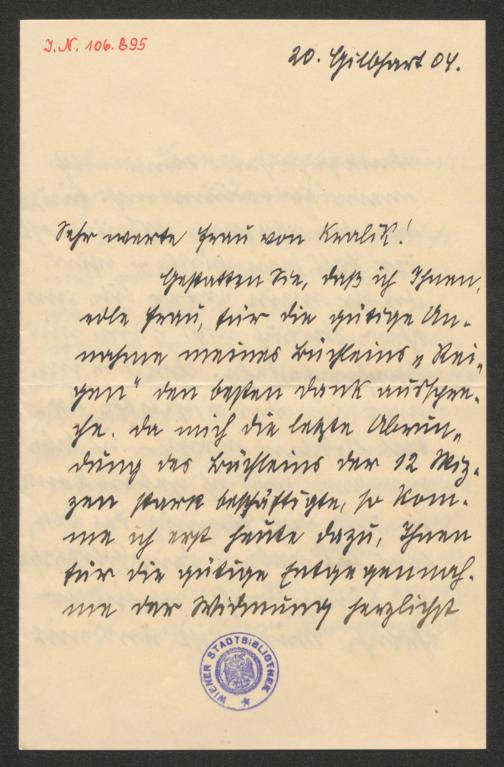 I.N. 106.895
20. Gilbhart 04.
Sehr werte Frau von Kralik!
Gestatten Sie, daß ich Ihnen,
edle Frau, für die gütige An-
nahme meines Büchleins „Rei-
gen" den besten Dank ausspre-
che. Da mich die letzte Abrun-
dung des Büchleins der 12 Skiz-
zen stark beschäftigte, so kom-
me ich erst heute dazu, Ihnen
für die gütige Entgegennah-
me der Widmung herzlichst
WIENER STADTBIBLIOTHEK